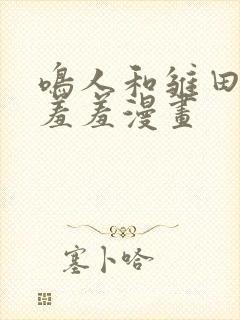 鳴人和雏田
羞羞漫畫
塞卜哈